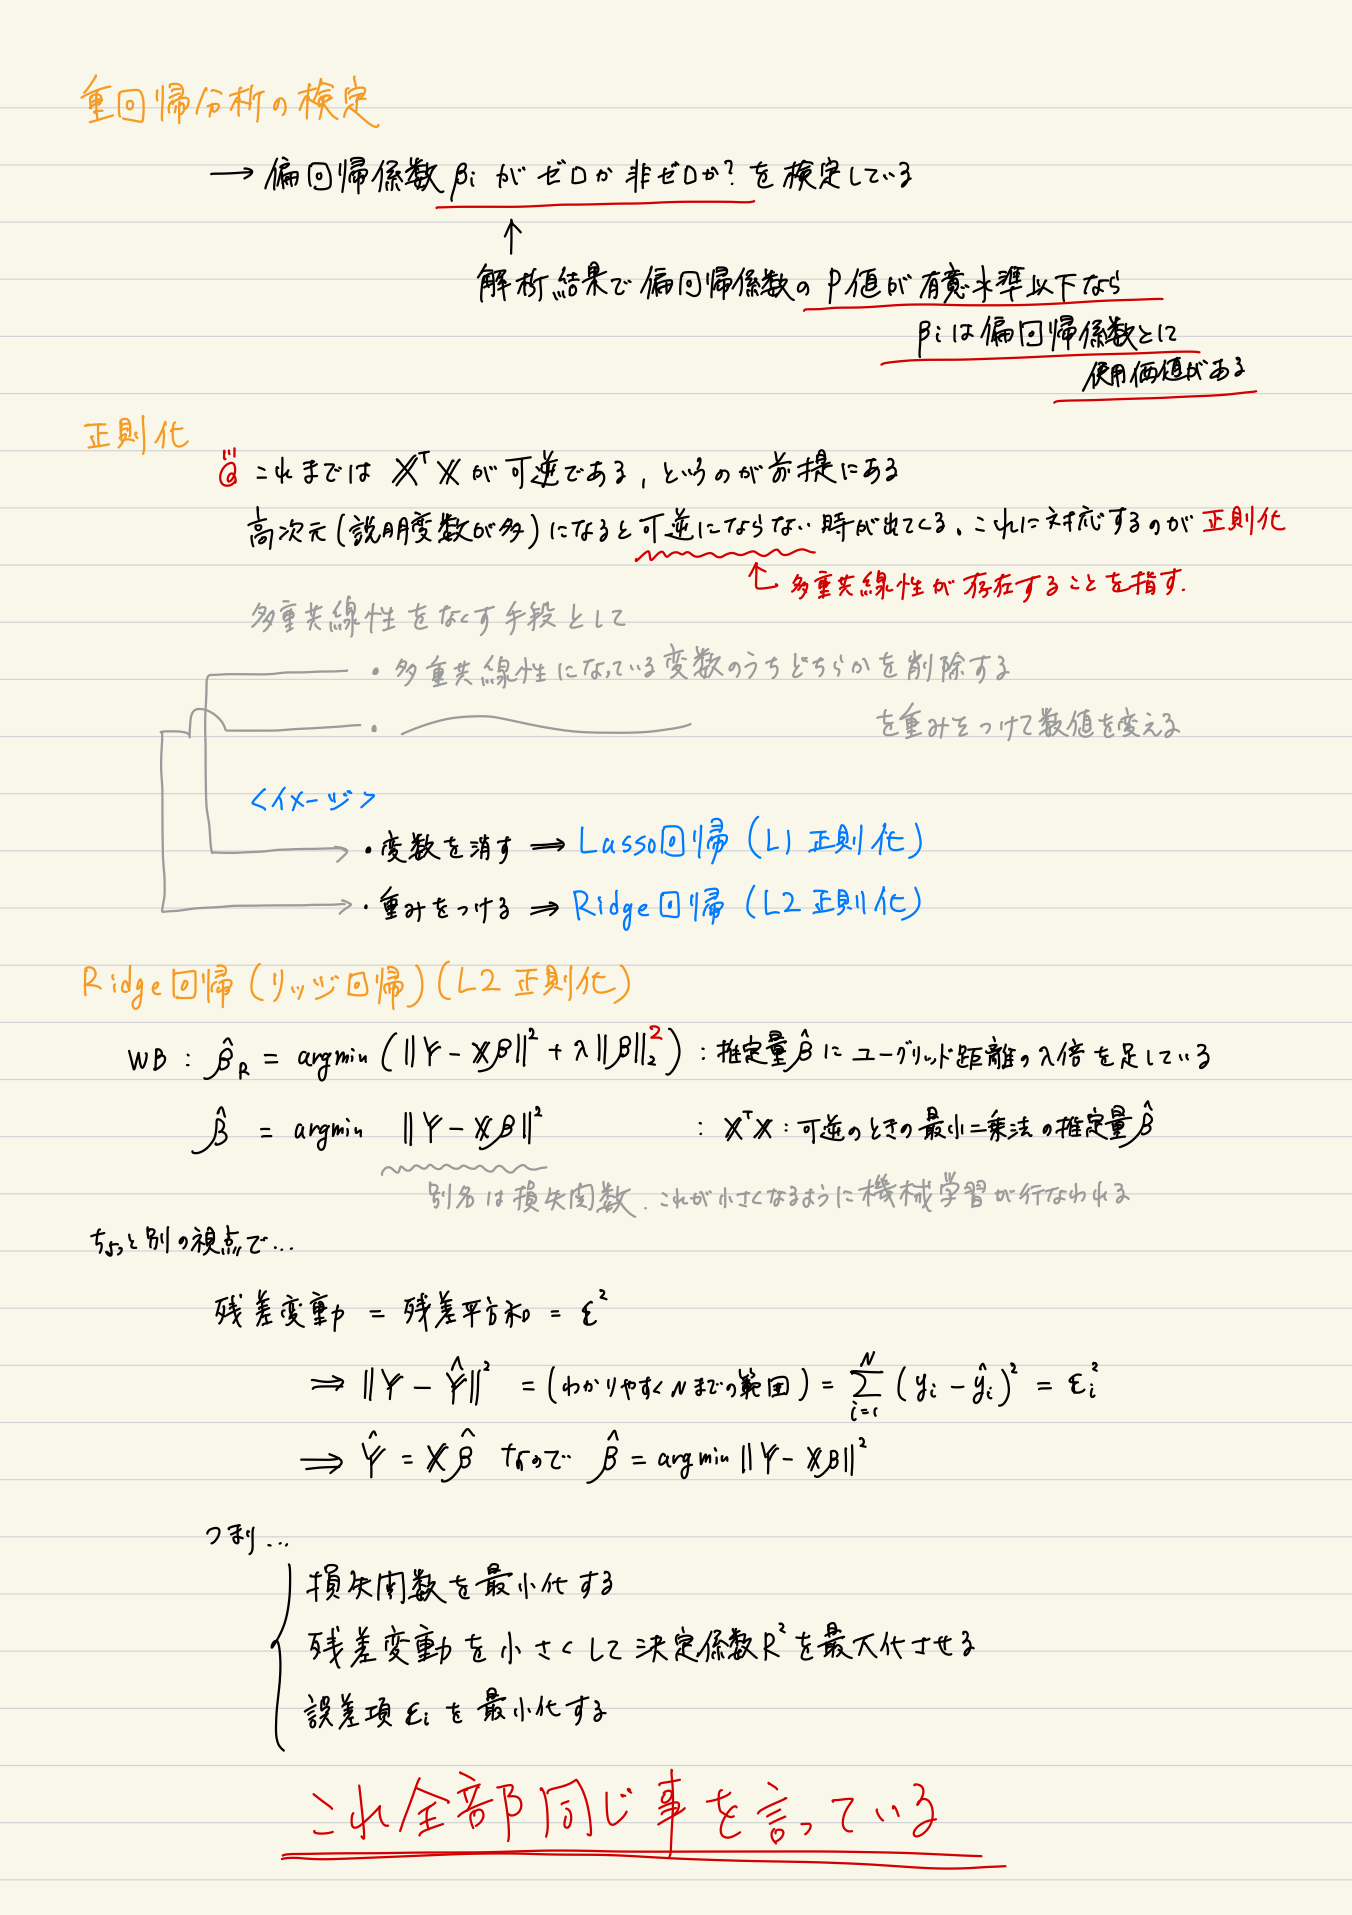 重回帰分析の検定
→ 偏回帰係数 βi がゼロか非ゼロか? を検定している
↑
解析結果で偏回帰係数の P値が有意水準以下なら
βiは偏回帰係数とに
使用価値がある
正則化
@ これまでは X^T X が可逆である, というのが前提にある
高次元(説明変数が多)になると可逆にならない時が出てくる. これに対応するのが 正則化
↑ 多重共線性が存在することを指す.
多重共線性をなくす手段として
・多重共線性になっている変数のうちどちらかを削除する
・ を重みをつけて数値を変える
<イメージ>
・変数を消す ⇒ Lasso回帰 (L1 正則化)
・重みをつける ⇒ Ridge回帰 (L2 正則化)
Ridge回帰 (リッジ回帰) (L2 正則化)
WB : β̂_R = argmin (||Y - Xβ||² + λ||β||₂²) : 推定量β̂に ユークリッド距離のλ倍を足している
β̂ = argmin ||Y - Xβ||² : X^T X : 可逆のときの最小二乗法の推定量β̂
別名は損失関数. これが小さくなるように機械学習が行なわれる
ちょっと別の視点で...
残差変動 = 残差平方和 = ε²
⇒ ||Y - Ŷ||² = (わかりやすくNまでの範囲) = Σ_{i=1}^{N} (yi - ŷi)² = εi²
⇒ Ŷ = Xβ̂ なので β̂ = argmin ||Y - Xβ||²
つまり...
損失関数を最小化する
残差変動を小さくして決定係数R²を最大化させる
誤差項 εi を最小化する
これ全部同じ事を言っている